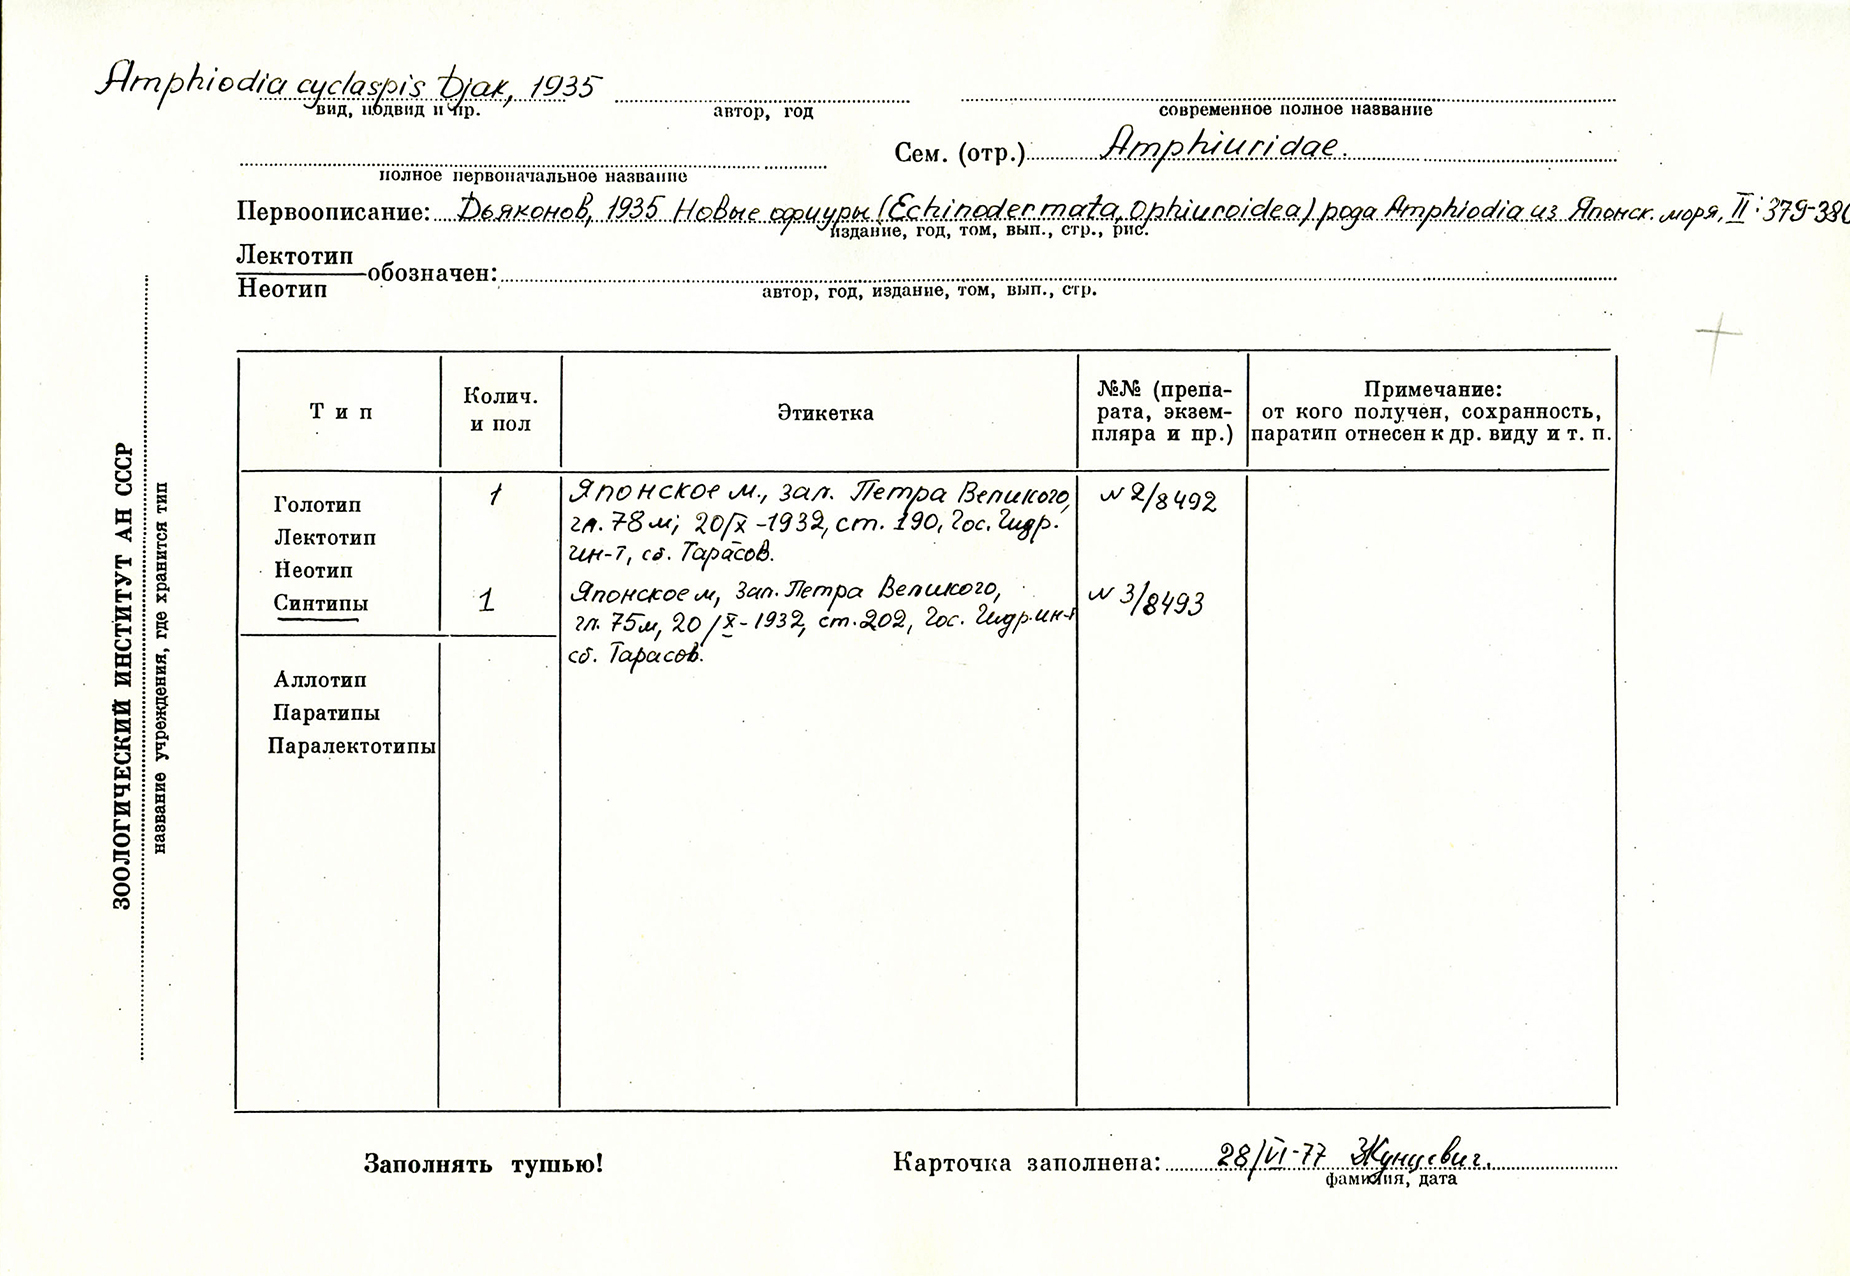 Amphiodia cyclaspis Djak, 1935
вид, подвид и пр.
автор, год
современное полное название
Сем. (отр.) Amphiuridae.
полное первоначальное название
Первоописание: Дьяконов, 1935 Новые офиуры (Echinodermata, Ophiuroidea) рода Amphiodia из Японск. моря, II: 379-380
издание, год, том, вып., стр., рис.
Лектотип
обозначен:
Неотип
автор, год, издание, том, вып., стр.
ЗООЛОГИЧЕСКИЙ ИНСТИТУТ АН СССР
название учреждения, где хранится тип
Тип
Колич. и пол
Этикетка
№№ (препа-
рата, экзем-
пляра и пр.)
Примечание:
от кого получен, сохранность,
паратип отнесен к др. виду и т. п.
Голотип
Лектотип
Неотип
Синтипы
1
Японское м., зал. Петра Великого,
гл. 78 м; 20/X-1932, ст. 190, Гос. Гидр.
ин-т, сб. Тарасов.
N 2/8492
1
Японское м, зал. Петра Великого,
гл. 75м, 20/X-1932, ст. 202, Гос. Гидр. ин-т
сб. Тарасов.
N 3/8493
Аллотип
Паратипы
Паралектотипы
Заполнять тушью!
Карточка заполнена: 28/VI-77
фамилия, дата